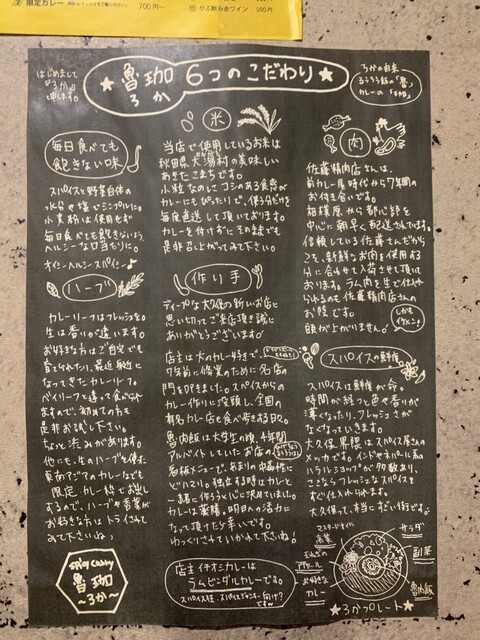 限定カレー
700円〜
がぶ飲み赤ワイン 500円
はじめまして
『ろか』と
申します。
★ 魯珈 6つのこだわり ★
ろか
ろかの由来
カレーの「珈」
毎日食べても
飽きない味
スパイスと野菜自体の
水分や塩でシンプルに。
小麦粉は使用せず
毎日食べても飽きないよう、
ヘルシーな口当たりに。
オイシーヘルシースパイシー♪
ハーブ
カレーリーフはフレッシュを。
生は香りが違います。
お好きな方はご自宅でも
育てられたり、最近身近に
なってきたカレーリーフ。
ベイリーフと違って食べられ
ますので、初めての方も
是非お試し下さい。
ちょっと渋みがあります。
他にも、生のハーブを使った
限定カレー
するので、ハーブや香菜が
お好きな方はトライされて
みて下さいね♪
SPICY CURRY
魯珈
〜ろか〜
米
当店で使用しているお米は
秋田県大潟村の美味しい
あきたこまちです。
小粒なのにコシのある食感が
カレーにもぴったりで、使う分だけを
毎度直送して頂いております。
カレーを付けずにそのままでも
是非召し上がってみて下さい。
作り手
ディープな大久保の新しいお店に
思い切ってご来店頂き誠に
ありがとうございます。
店主は大のカレー好きで、
7年前に修業のために名店の
門を叩きました。スパイスからの
カレー作りに没頭し、全国の
有名カレー店も食べ歩きする日々。
魯肉飯は大学生の頃、4年間
アルバイトしていたお店の
看板メニューで、あまりの中毒性に
ドハマリ。独立する時はカレーと
一緒に作ろうと心に決めていました。
カレーは薬膳。明日への活力に
なって頂けたら幸いです。
ゆっくりされていかれて下さいね！
店主イチオシカレーは
ラムビンダルーカレーです。
スパイス狂・スパイスジャンキー向け？
ですが
肉
佐藤精肉店さんは、
前カレー屋時代から7年間の
お付き合いです。
相模原から都心部を
中心に朝早く配送されてます。
信頼している佐藤さんだから
こそ、新鮮なお肉を使用する
分に合わせて入荷させて頂いて
おります。ラム肉を生で仕入れ
られるのも佐藤精肉店さんの
お陰です。
頭が上がりません。
しかも
イケメン！
スパイスの鮮度
スパイスは鮮度が命。
時間が経つと色や香りが
薄くなったり、フレッシュさが
なくなっていきます。
大久保界隈はスパイス屋さんの
メッカです。インドやネパール系の
ハラルショップが多数あり、
ここならフレッシュなスパイスを
すぐ仕入れられます。
大久保って、本当にすごい街です。
マスタードオイル
サラダ
副菜
お好きな
カレー
魯肉飯
★ろかプレート★